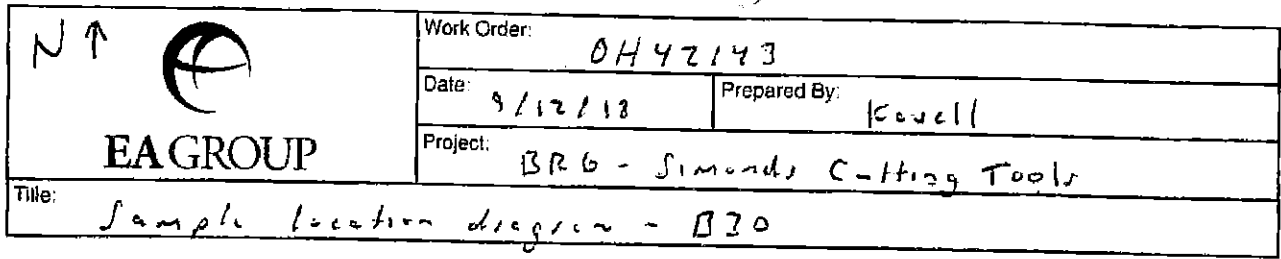 N ↑
EA GROUP
Work Order: OH42143
Date: 9/12/13
Prepared By: Kovell
Project: BRG - Simonds Cutting Tools
Title: Sample location diagram - B30